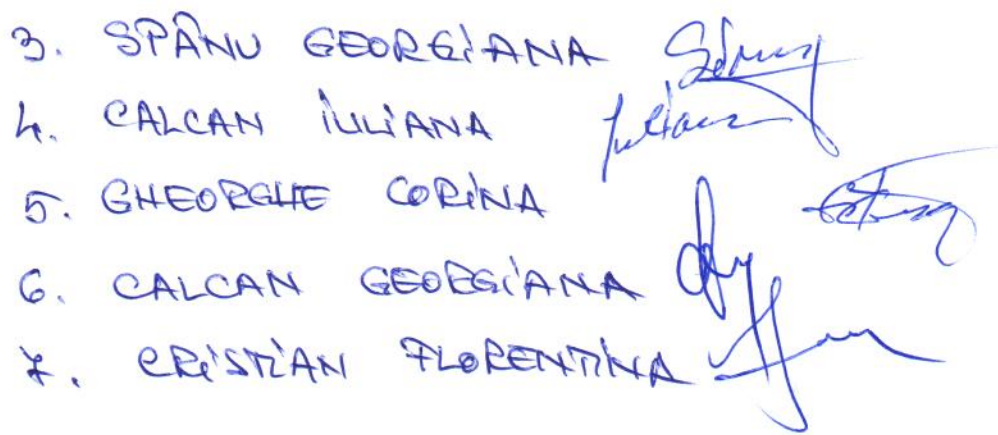 3. SPÂNU GEORGIANA
4. CALCAN IULIANA Iuliana
5. GHEORGHE CORINA
6. CALCAN GEORGIANA
7. CRISTIAN FLORENTINA